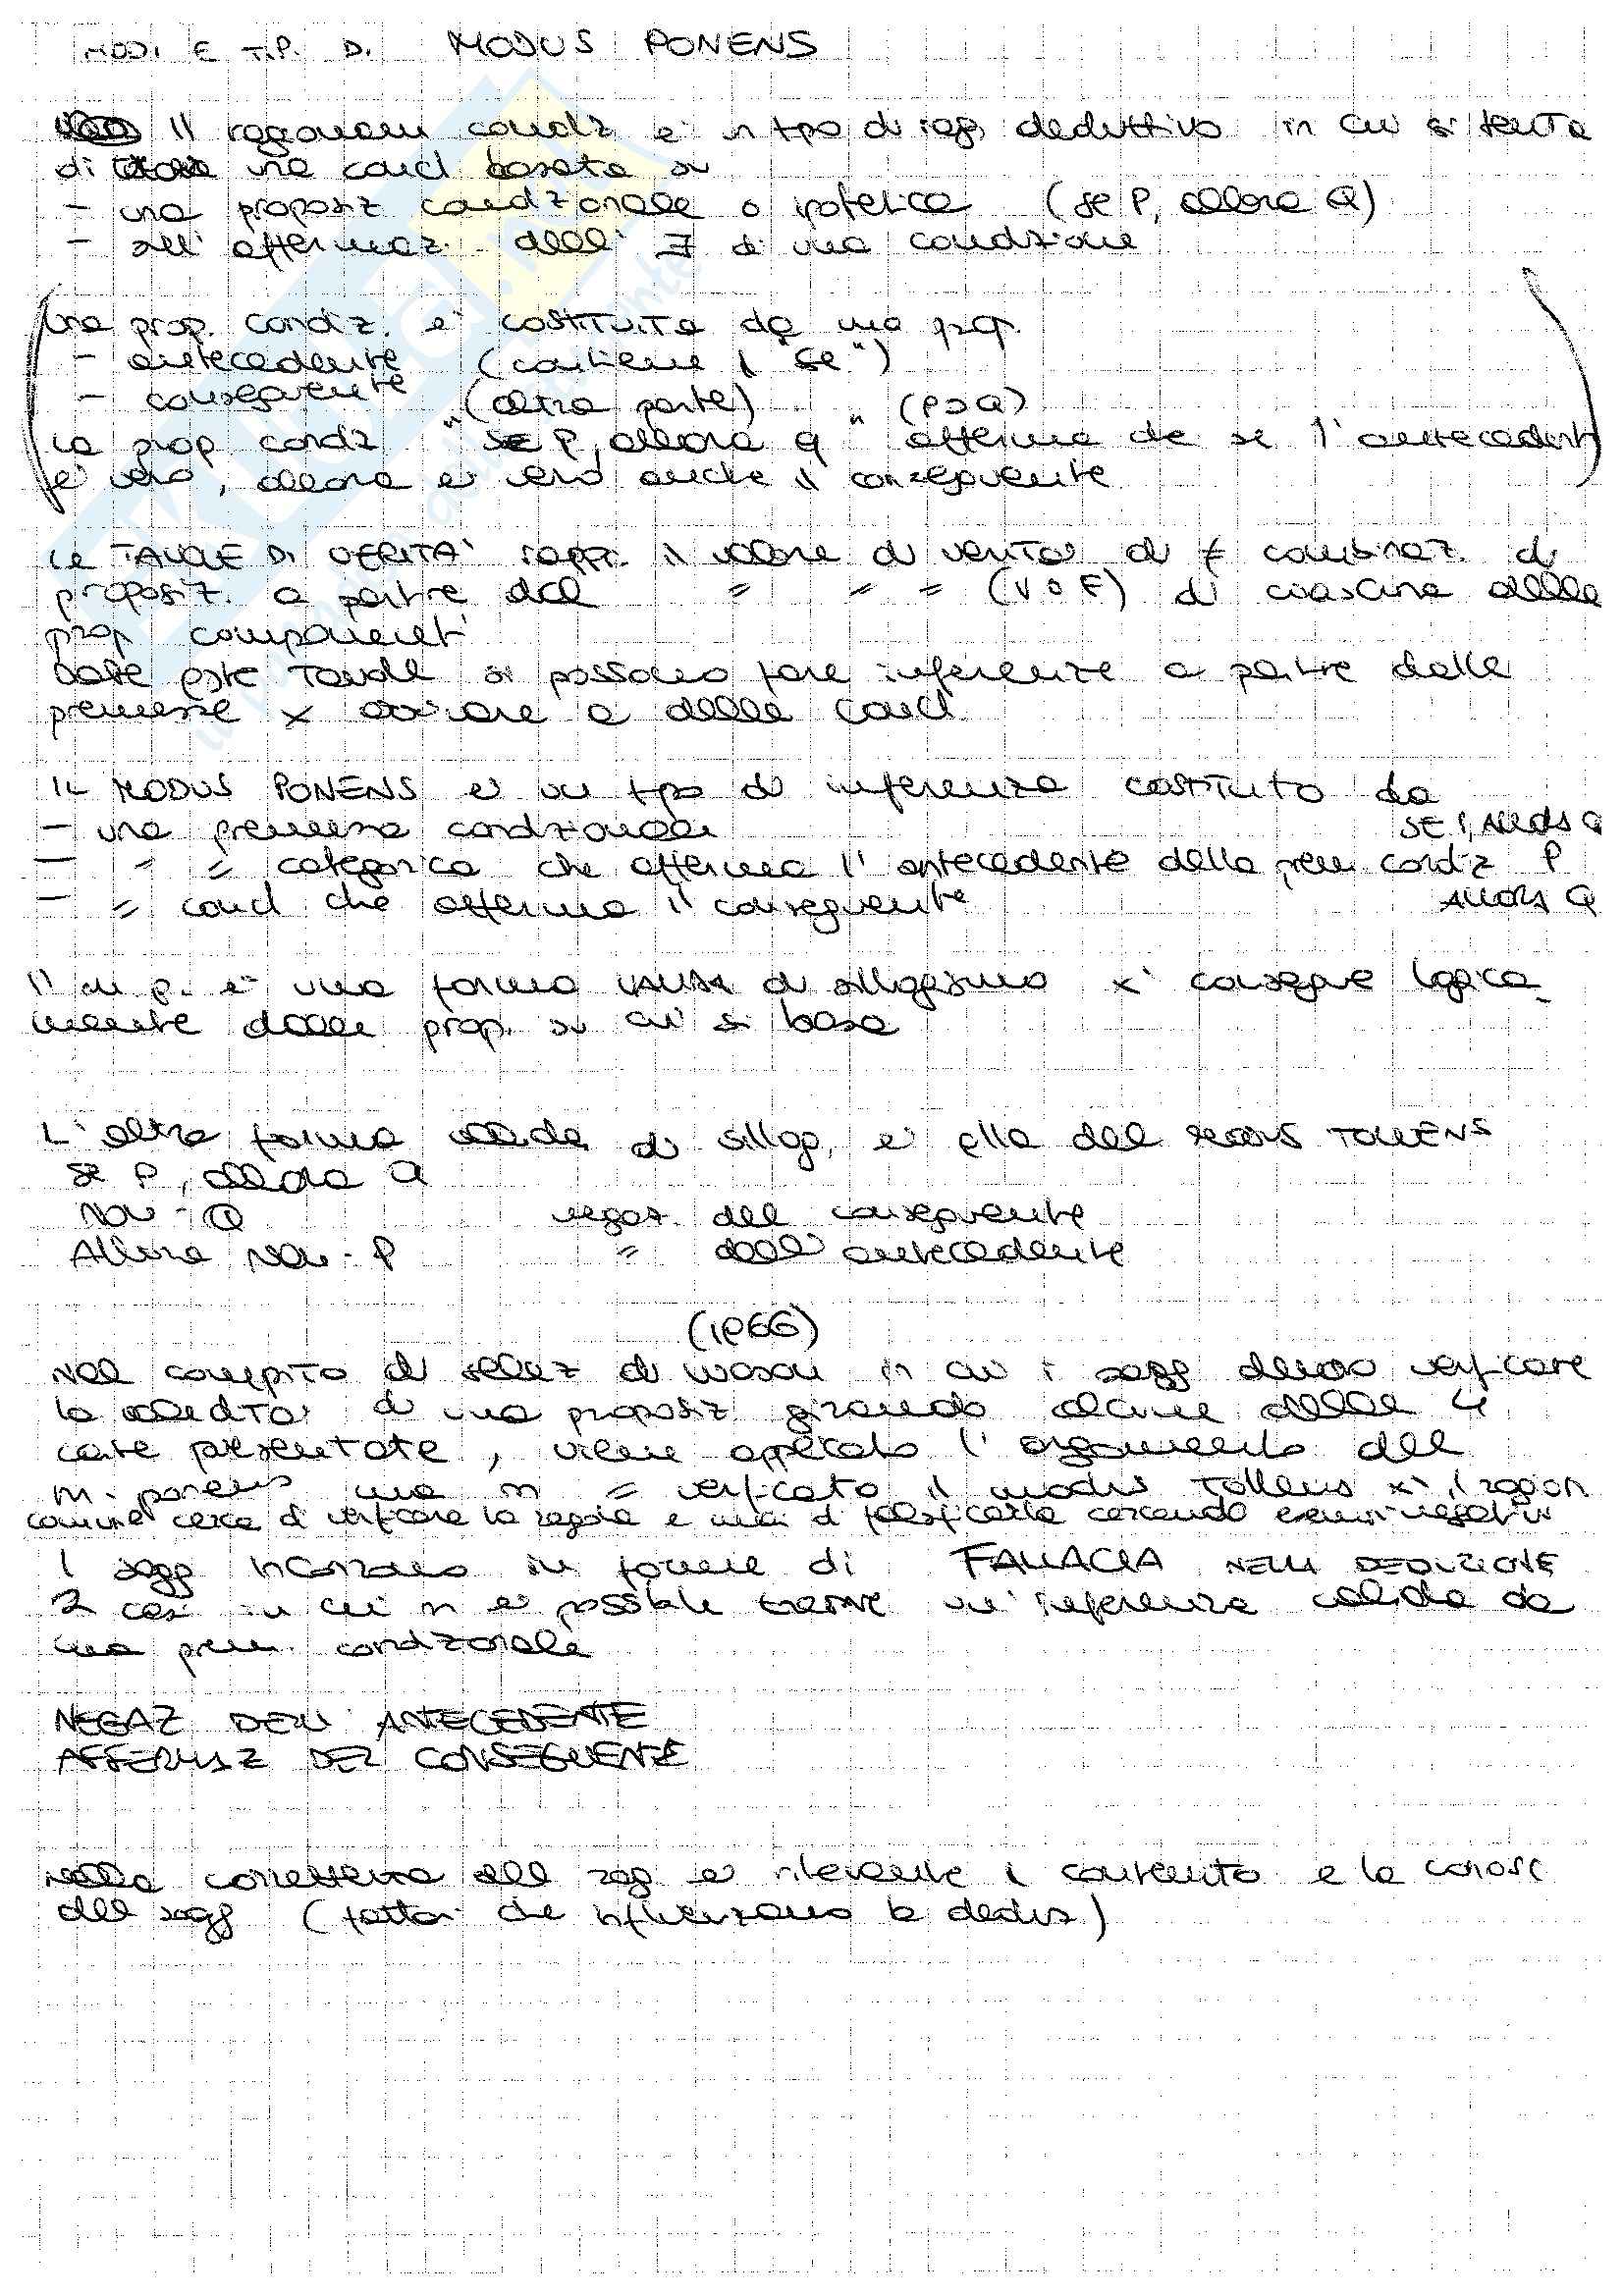 MODI E TIP. DI MODUS PONENS
Il ragionam condiz e' un tipo di rag. deduttivo in cui si tenta
di una concl basata su
- una proposiz condizionale o ipotetica (se P, allora Q)
- sull'affermaz. dell' ∃ di una condizione
Una prop. condiz. e' costituita da una prop.
- antecedente (contiene il "se")
- conseguente (altra parte) (P⊃Q)
La prop condiz "se P, allora q" afferma che se l'antecedente
e' vero, allora e' vero anche il conseguente
Le TAVOLE DI VERITA' rappr. il valore di verità di ≠ combinaz. di
proposiz. a partire dal = = = (V o F) di ciascuna delle
prop componenti
Date qste tavole si possono fare inferenze a partire dalle
premesse x arrivare a delle concl.
IL MODUS PONENS e' un tipo di inferenza costituito da
- una premessa condizionale SE P, ALLORA Q
- = = categorica che afferma l'antecedente della prem condiz P
- = concl che afferma il conseguente ALLORA Q
Il m p. e' una forma VALIDA di sillogismo x' consegue logica_
mente dalle prop. su cui si basa
L'altra forma valida di sillog. e' qlla del MODUS TOLLENS
Se P, allora Q
Non - Q negaz. del conseguente
Allora Non - P = dell'antecedente
(1966)
Nel compito di selez di Wason in cui i sogg devono verificare
la validità di una proposiz girando alcune delle 4
carte presentate, viene applicato l'argomento del
m. ponens ma n = verificato il modus tollens x' il ragion
comune cerca di verificare la regola e mai di falsificarla cercando esempi negativi
I sogg incorrono in forme di FALLACIA NELLA DEDUZIONE
2 casi in cui n e' possibile trarre un'inferenza valida da
una prem. condizionale
NEGAZ DELL'ANTECEDENTE
AFFERMAZ DEL CONSEGUENTE
Nella correttezza del rag e' rilevante il contenuto e la conosc
del sogg (fattori che influenzano la deduz)